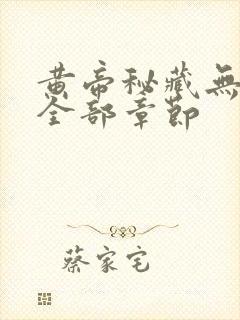 黄帝秘藏無
全部章節
蔡家宅